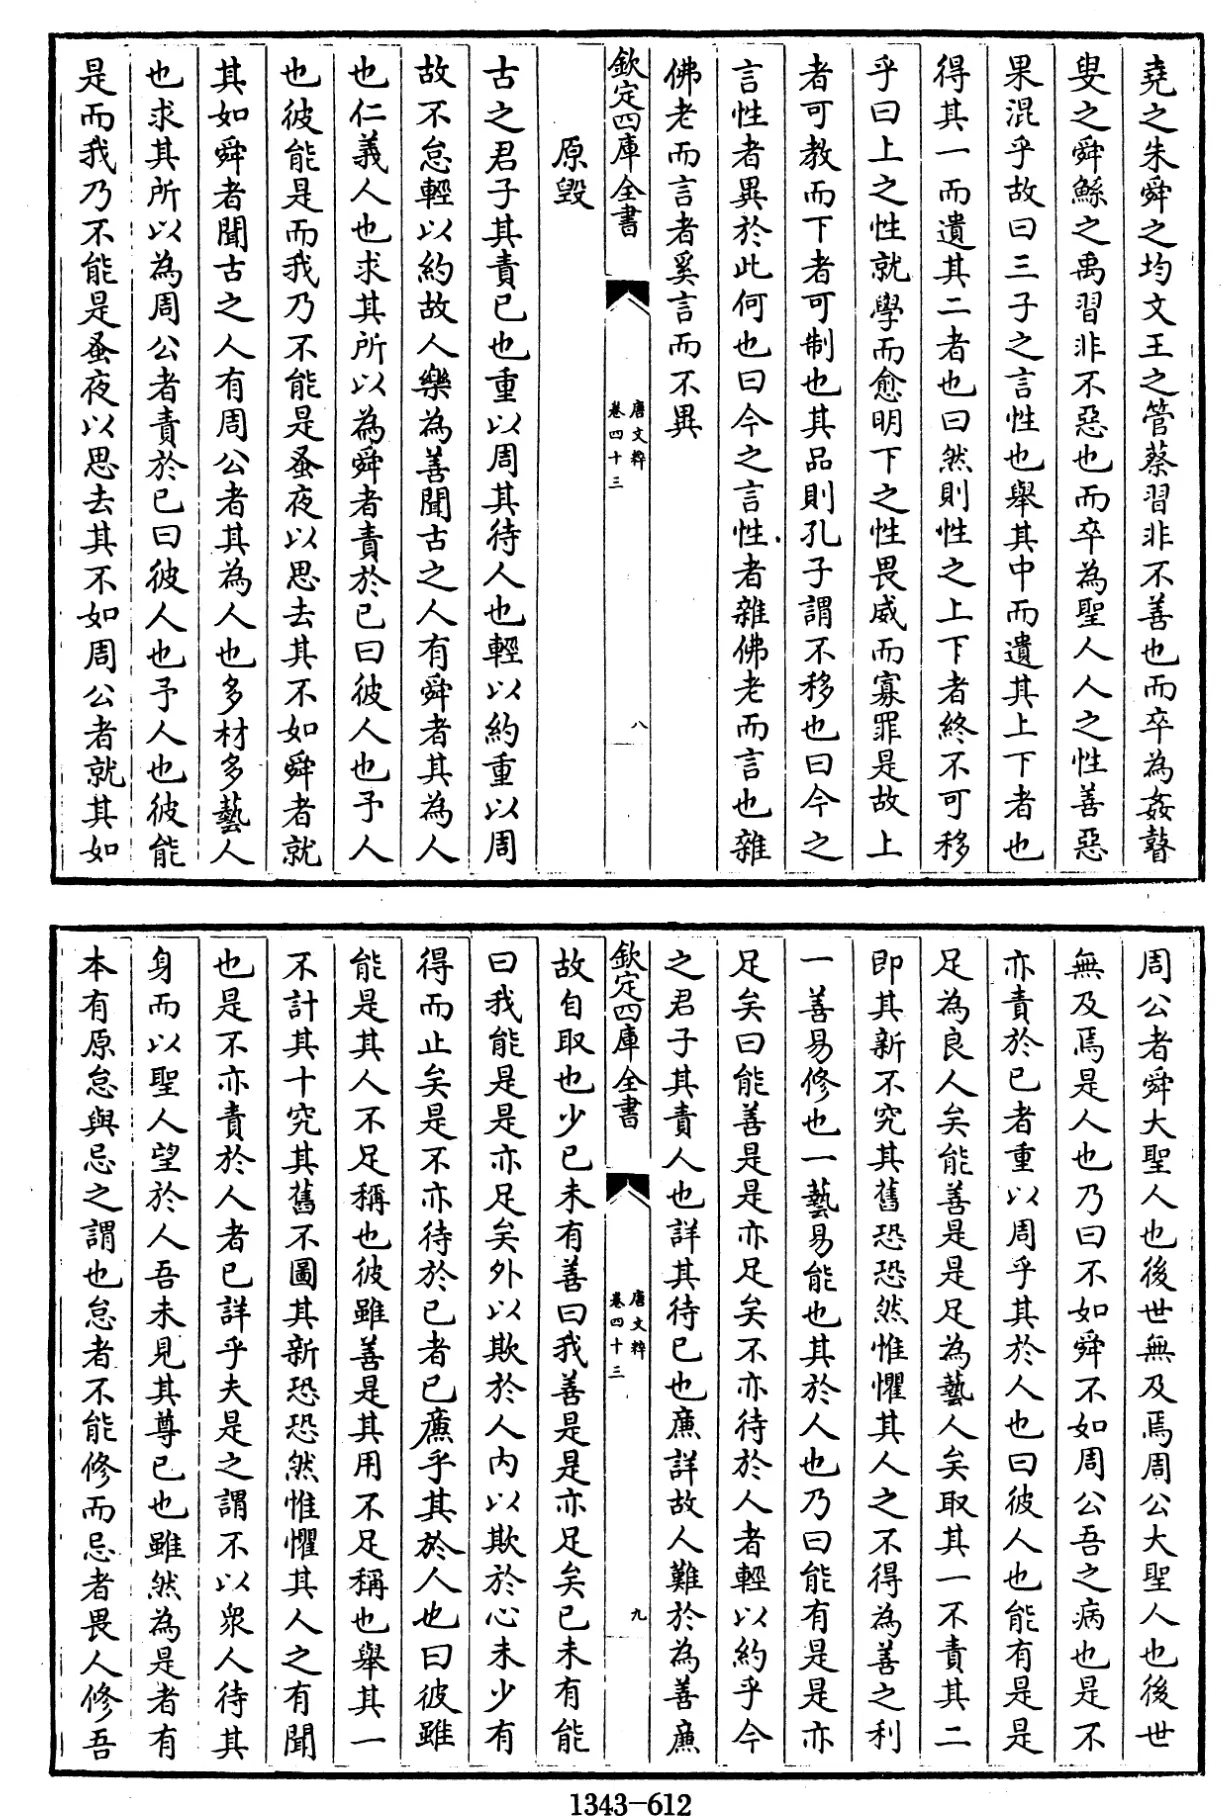 堯之朱舜之均文王之管蔡習非不善也而卒為姦瞽
叟之舜鯀之禹習非不惡也而卒為聖人人之性善惡
果混乎故曰三子之言性也舉其中而遺其上下者也
得其一而遺其二者也曰然則性之上下者終不可移
乎曰上之性就學而愈明下之性畏威而寡罪是故上
者可教而下者可制也其品則孔子謂不移也曰今之
言性者異於此何也曰今之言性者雜佛老而言也雜
佛老而言者奚言而不異
欽定四庫全書
唐文粹
卷四十三
八
原毀
古之君子其責已也重以周其待人也輕以約重以周
故不怠輕以約故人樂為善聞古之人有舜者其為人
也仁義人也求其所以為舜者責於已曰彼人也予人
也彼能是而我乃不能是蚤夜以思去其不如舜者就
其如舜者聞古之人有周公者其為人也多材多藝人
也求其所以為周公者責於已曰彼人也予人也彼能
是而我乃不能是蚤夜以思去其不如周公者就其如
周公者舜大聖人也後世無及焉周公大聖人也後世
無及焉是人也乃曰不如舜不如周公吾之病也是不
亦責於已者重以周乎其於人也曰彼人也能有是是
足為良人矣能善是是足為藝人矣取其一不責其二
即其新不究其舊恐恐然惟懼其人之不得為善之利
一善易修也一藝易能也其於人也乃曰能有是是亦
足矣曰能善是是亦足矣不亦待於人者輕以約乎今
之君子其責人也詳其待已也廉詳故人難於為善廉
欽定四庫全書
唐文粹
卷四十三
九
故自取也少已未有善曰我善是是亦足矣已未有能
曰我能是是亦足矣外以欺於人内以欺於心未少有
得而止矣是不亦待於已者已廉乎其於人也曰彼雖
能是其人不足稱也彼雖善是其用不足稱也舉其一
不計其十究其舊不圖其新恐恐然惟懼其人之有聞
也是不亦責於人者已詳乎夫是之謂不以衆人待其
身而以聖人望於人吾未見其尊已也雖然為是者有
本有原怠與忌之謂也怠者不能修而忌者畏人修吾
1343-612